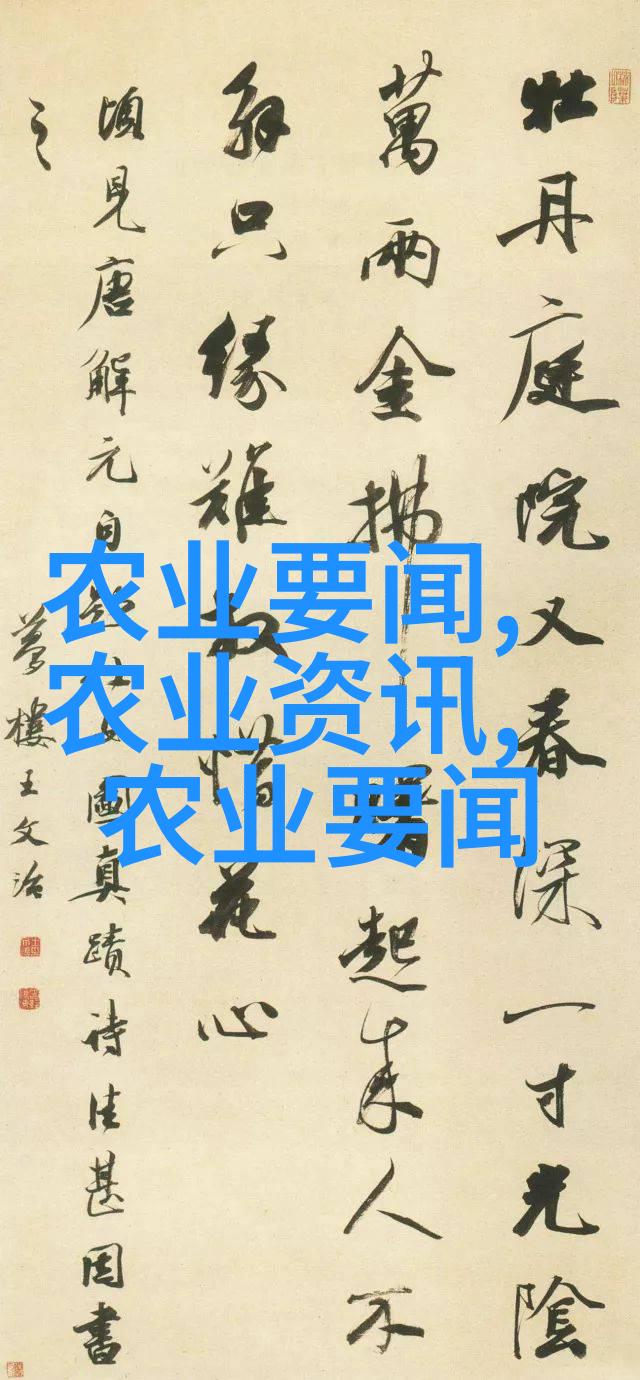 农业要闻,
农业资讯,
农业要闻
牡丹庭院又春深一寸光陰
萬兩金拂曙起來人不
解只緣難放惜花心
頃見唐解元自題圖真蹟詩佳甚因書
之
夢樓王文治